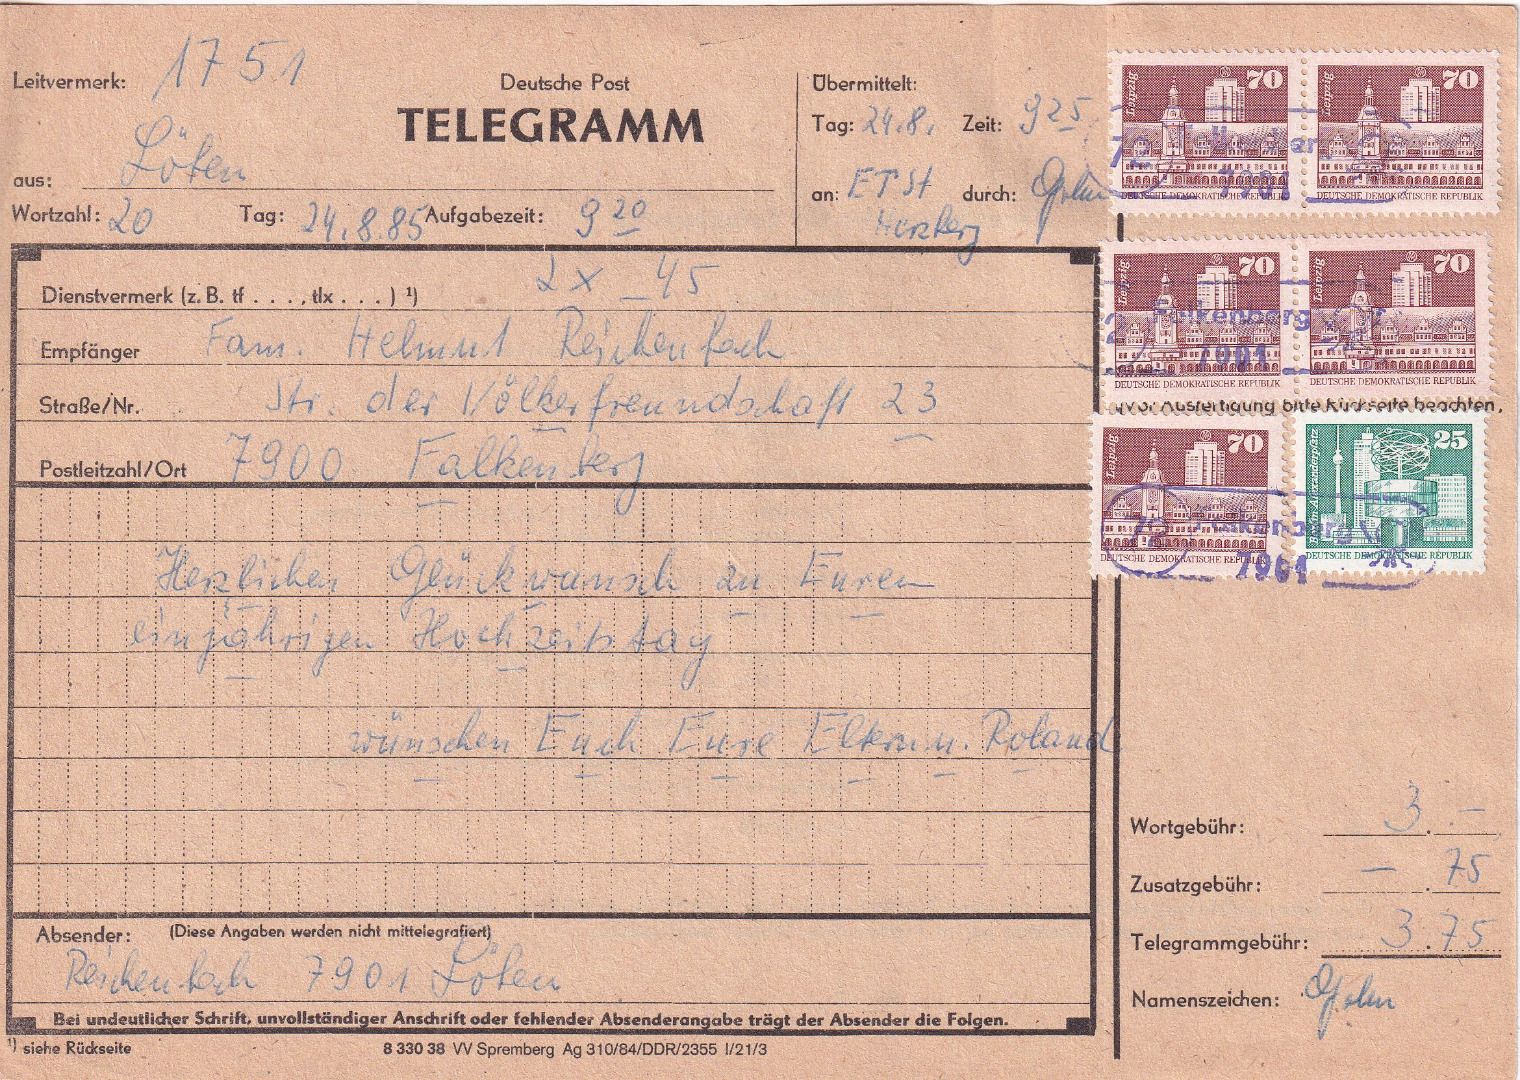 Leitvermerk: 1751
Deutsche Post
TELEGRAMM
aus: Löten
Wortzahl: 20 Tag: 24.8.85 Aufgabezeit: 9 20
Übermittelt:
Tag: 24.8. Zeit: 9 25
an: ETSt durch:
Herzberg
Leipzig 70 DEUTSCHE DEMOKRATISCHE REPUBLIK
Leipzig 70 DEUTSCHE DEMOKRATISCHE REPUBLIK
72 7901
Leipzig 70 DEUTSCHE DEMOKRATISCHE REPUBLIK
Leipzig 70 DEUTSCHE DEMOKRATISCHE REPUBLIK
Falkenberg
7901
(Vor Ausfertigung bitte Rückseite beachten.
Leipzig 70 DEUTSCHE DEMOKRATISCHE REPUBLIK
Berlin, Alexanderplatz 25 DEUTSCHE DEMOKRATISCHE REPUBLIK
72 Falkenberg
7901
Dienstvermerk (z. B. tf . . . , tlx . . . ) ¹) 2x 45
Empfänger Fam. Helmut Reichenbach
Straße/Nr. Str. der Völkerfreundschaft 23
Postleitzahl/Ort 7900 Falkenberg
Herzlichen Glückwunsch zu Euren
einjährigen Hochzeitstag
wünschen Euch Eure Eltern u. Roland
Wortgebühr: 3. –
Zusatzgebühr: – . 75
Telegrammgebühr: 3.75
Namenszeichen:
Absender: (Diese Angaben werden nicht mittelegrafiert)
Reichenbach 7901 Löten
Bei undeutlicher Schrift, unvollständiger Anschrift oder fehlender Absenderangabe trägt der Absender die Folgen.
¹) siehe Rückseite 8 330 38 VV Spremberg Ag 310/84/DDR/2355 I/21/3